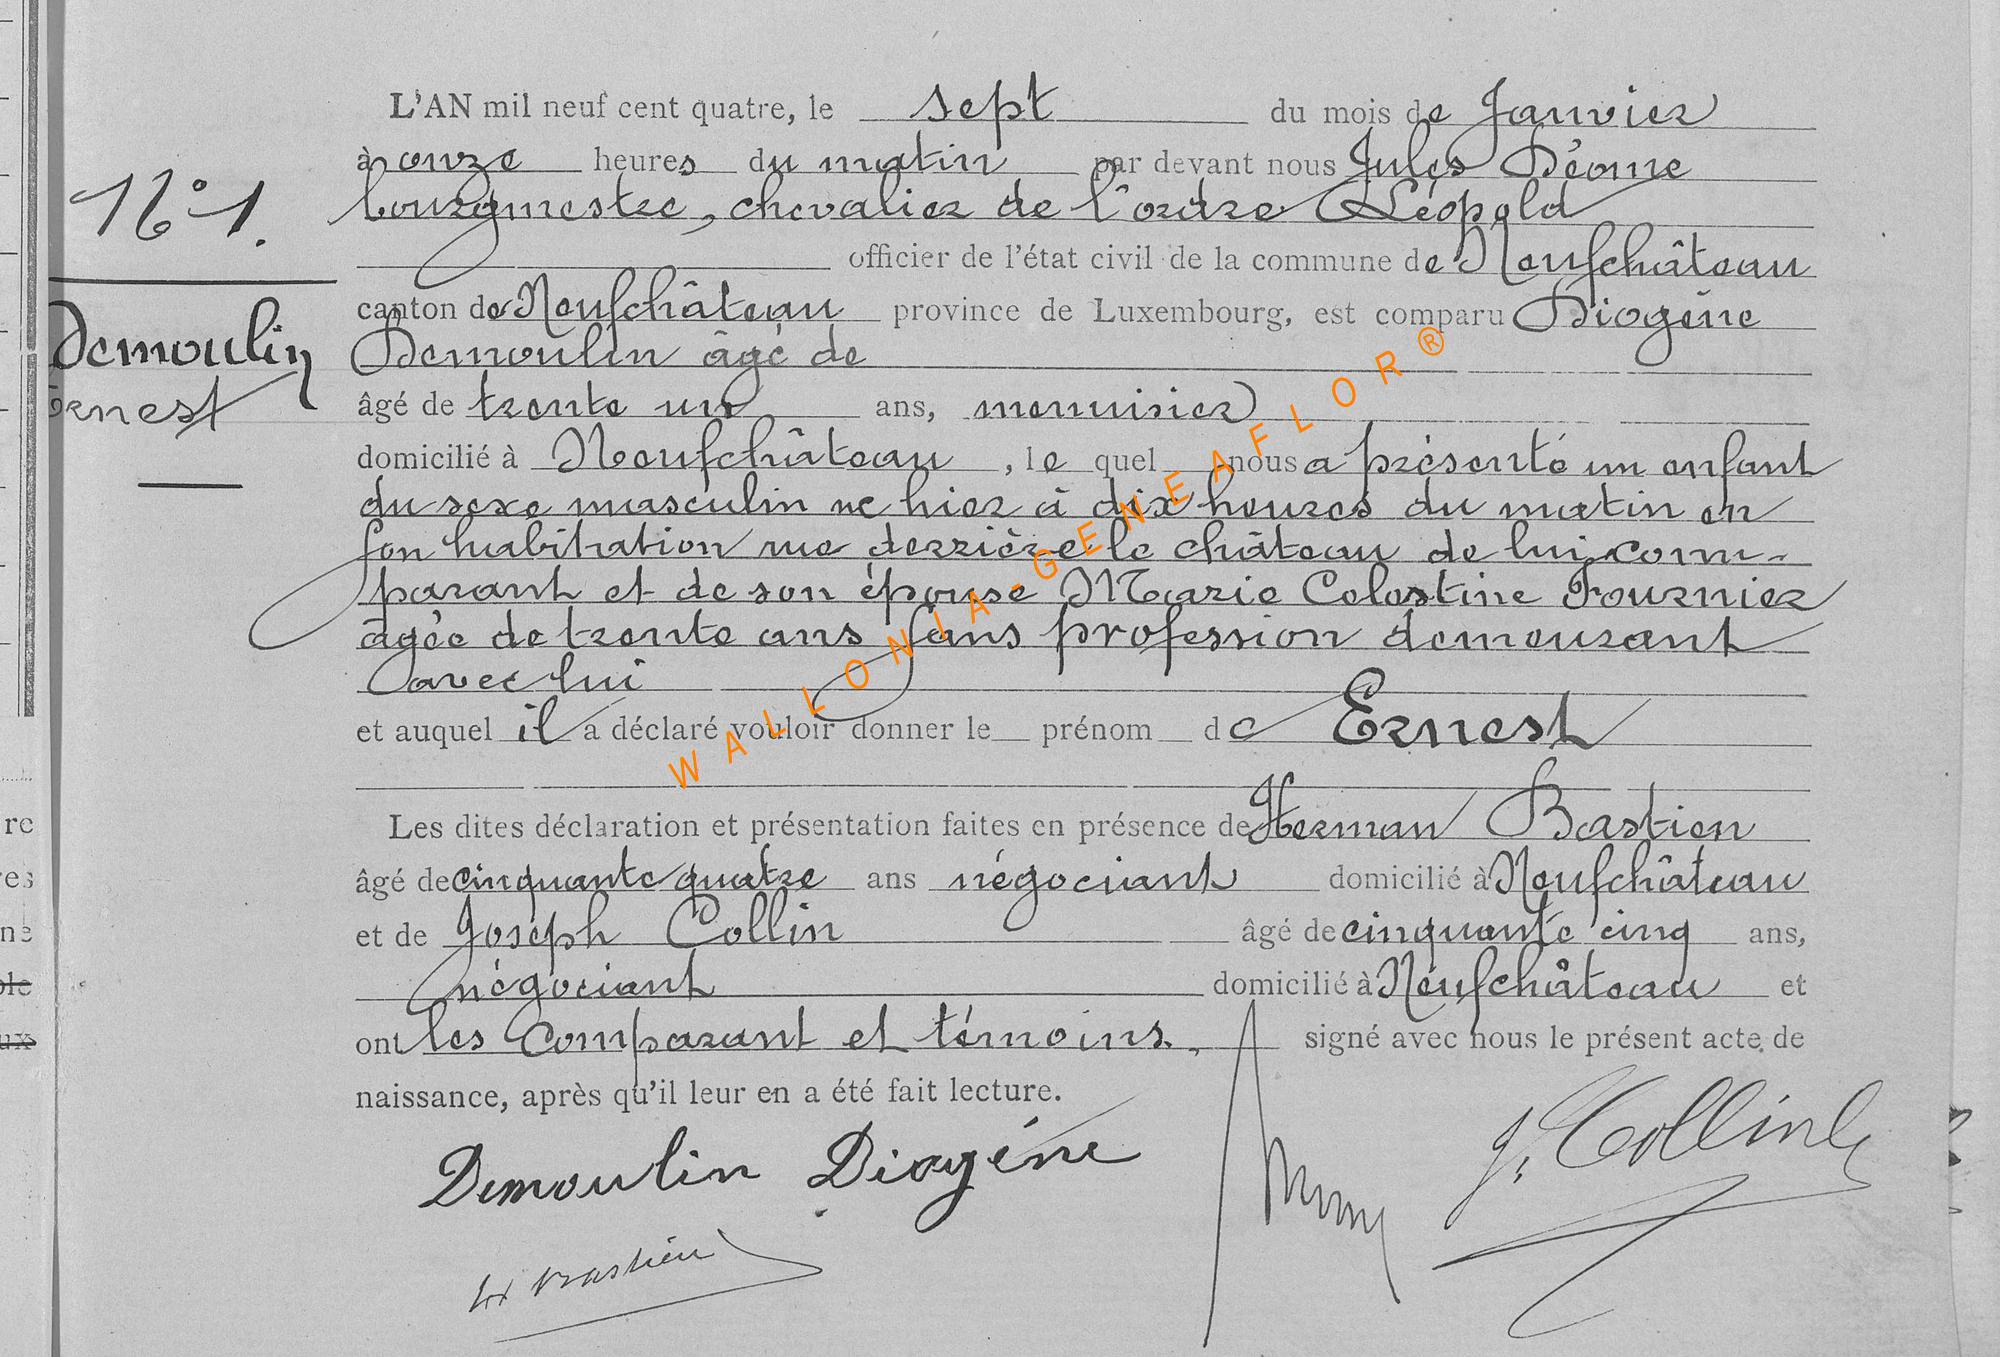 L'AN mil neuf cent quatre, le sept du mois de Janvier
à onze heures du matin par devant nous Jules Déome
N° 1.
bourgmestre, chevalier de l'ordre Léopold
officier de l'état civil de la commune de Neufchâteau
canton de Neufchâteau province de Luxembourg, est comparu Diogène
Demoulin
Demoulin âgé de
Ernest
âgé de trente un ans, menuisier
domicilié à Neufchâteau, le quel nous a présenté un enfant
du sexe masculin né hier à dix heures du matin en
son habitation rue derrière le château de lui com-
parant et de son épouse Marie Celestine Fournier
âgée de trente ans sans profession demeurant
avec lui
et auquel il a déclaré vouloir donner le prénom de Ernest
Les dites déclaration et présentation faites en présence de Herman Bastien
âgé de cinquante quatre ans négociant domicilié à Neufchâteau
et de Joseph Collin âgé de cinquante cinq ans,
négociant domicilié à Neufchâteau et
ont les comparant et témoins. signé avec nous le présent acte de
naissance, après qu'il leur en a été fait lecture.
Demoulin Diogène
J. Collin
H Bastien
WALLONIA-GENEAFLOR®
re
res
ne
ole
ux